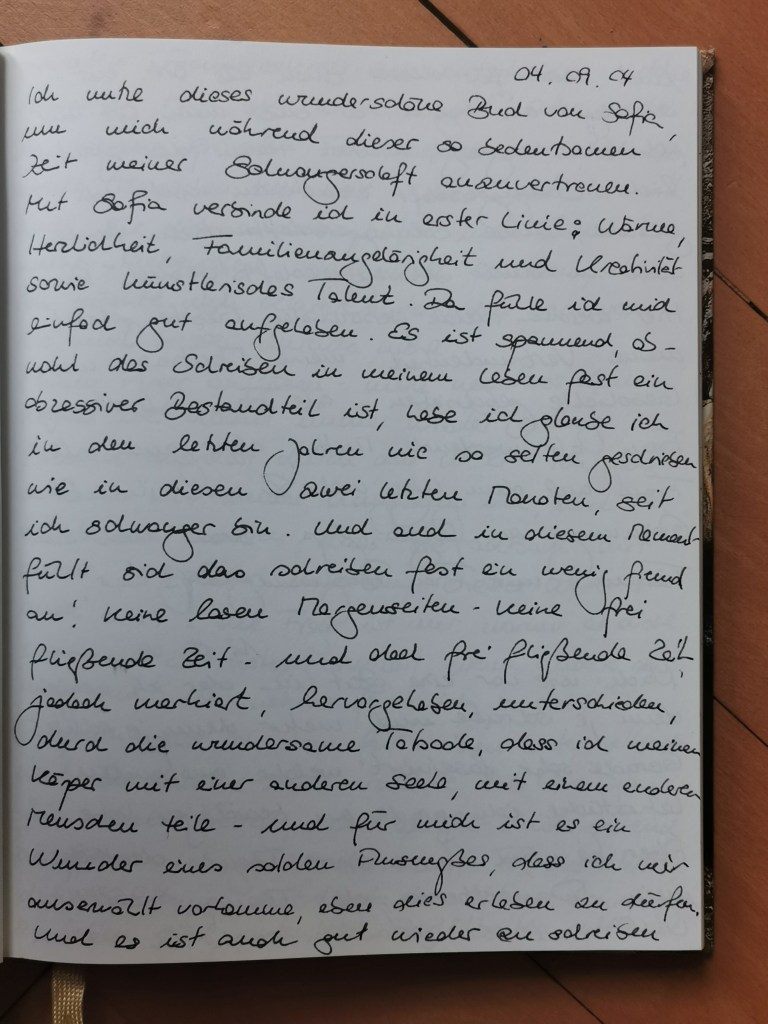 04.09.04
Ich nutze dieses wunderschöne Buch von Sofia,
um mich während dieser so bedeutsamen
Zeit meiner Schwangerschaft anzuvertrauen.
Mit Sofia verbinde ich in erster Linie: Wärme,
Herzlichkeit, Familienangehörigkeit und Kreativität
sowie künstlerisches Talent. Da fühle ich mich
einfach gut aufgehoben. Es ist spannend, ob-
wohl das Schreiben in meinem Leben fast ein
obzessiver Bestandteil ist, habe ich glaube ich
in den letzten Jahren nie so selten geschrieben
wie in diesen zwei letzten Monaten, seit
ich schwanger bin. Und auch in diesem Moment
fühlt sich das schreiben fast ein wenig fremd
an! Keine losen Morgenseiten - Keine frei
fließende Zeit - und doch frei fließende Zeit,
jedoch markiert, hervorgehoben, unterschieden,
durch die wundersame Tatsache, dass ich meinen
Körper mit einer anderen Seele, mit einem anderen
Menschen teile - und für mich ist es ein
Wunder eines solchen Ausmaßes, dass ich mir
auserwählt vorkomme, eben dies erleben zu dürfen.
Und es ist auch gut wieder zu schreiben